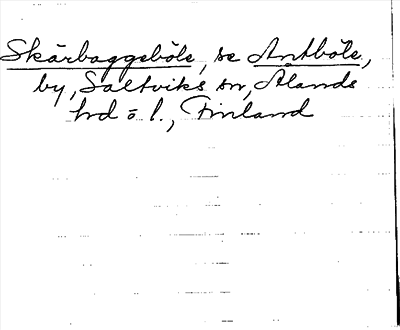 Skärbaggeböle, se Antböle,
by, Saltviks sn, Ålands
hd o. l., Finland